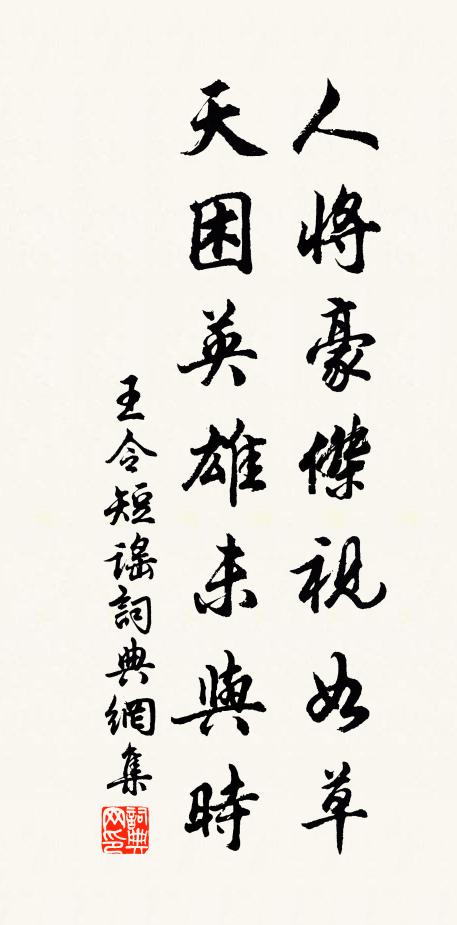 人將豪傑視如草
天困英雄未與時
王令短謠詞典網集
詞典网印